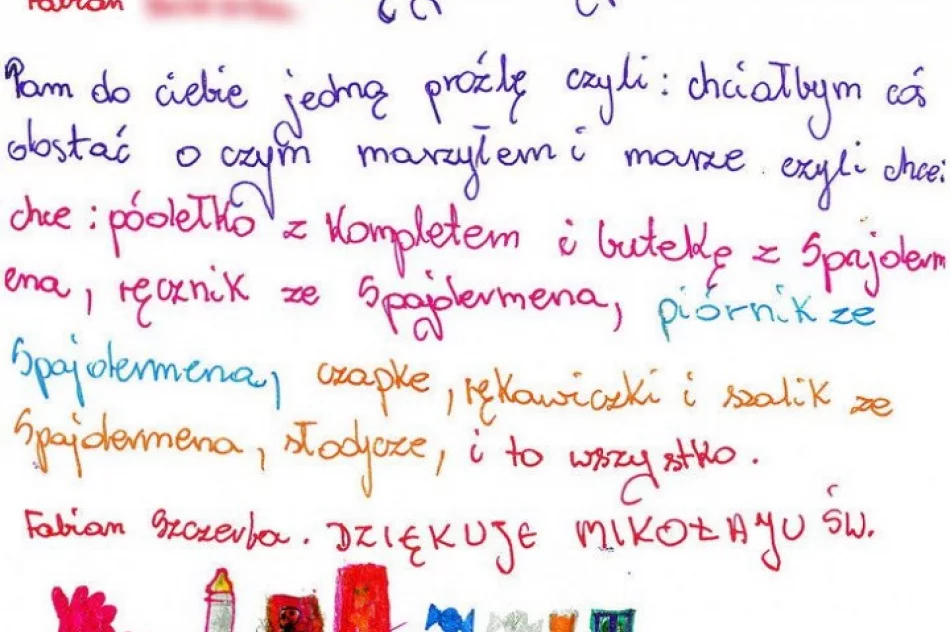 Fabian
Pam do ciebie jedną proźlę czyli: chciałbym coś
dostać o czym marzyłem i marze czyli chce:
chce: póolełko z kompletem i butekę z Spajderm
ena, ręcznik ze Spajdermena, piórnik ze
Spajdermena, czapke, rękawiczki i szalik ze
Spajdermena, słodycze, i to wszystko.
Fabian Szczerba. DZIĘKUJE MIKOŁAJU ŚW.